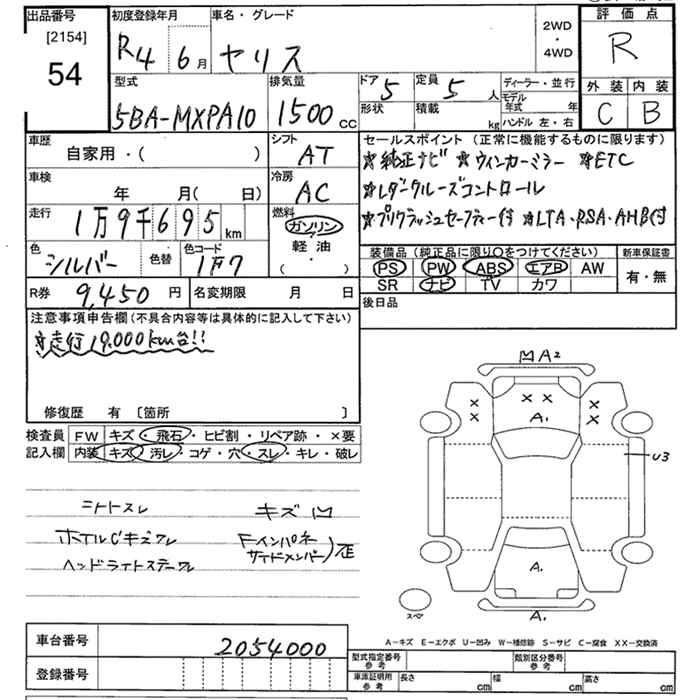 出品番号 初度登録年月 車名・グレード 2WD 評価点
[2154] R4 6月 ヤリス ・ R
54 4WD
型式 排気量 ドア 定員 ディーラー・並行 外装 内装
5BA-MXPA10 1500cc 5 5人 モデル年式 年 C B
形状 積載 kg ハンドル 左・右
車歴 シフト セールスポイント (正常に機能するものに限ります)
自家用・( ) AT ☆純正ナビ ☆ウィンカーミラー ☆ETC
車検 冷房 ☆レダクルーズコントロール
年 月( 日) AC ☆プリクラッシュセーフティー付 ☆LTA・RSA・AHB付
走行 1万9千695km 燃料 ガソリン
軽油
( ・ )
装備品 (純正品に限り〇をつけてください) 新車保証書
色 シルバー 色替 色コード 1F7 PS PW ABS エアB AW 有・無
SR ナビ TV カワ
R券 9,450円 名変期限 月 日 後日品
注意事項申告欄(不具合内容等は具体的に記入して下さい)
☆走行19,000km台!!
修復歴 有 [箇所 ]
検査員 FW キズ・飛石・ヒビ割・リペア跡・×要
記入欄 内装 キズ・汚レ・コゲ・穴・スレ・キレ・破レ
シートスレ キズ凹
ホイルCキズワレ Fインパネ
サイドメンバー)歪
ヘッドライトステーワレ
凹A2
× × × ×
× A. ×
U3
A.
スペア A.
A-キズ E-エクボ U-凹み W-補修跡 S-サビ C-腐食 XX-交換済
車台番号 2054000
型式指定番号 参考 類別区分番号 参考
登録番号 車庫証明用 参考 長さ cm 幅 cm 高さ cm